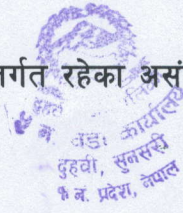 र्गत रहेका असं
वडा कार्यालय
दुहवी, सुनसरी
प्रदेश, नेपाल